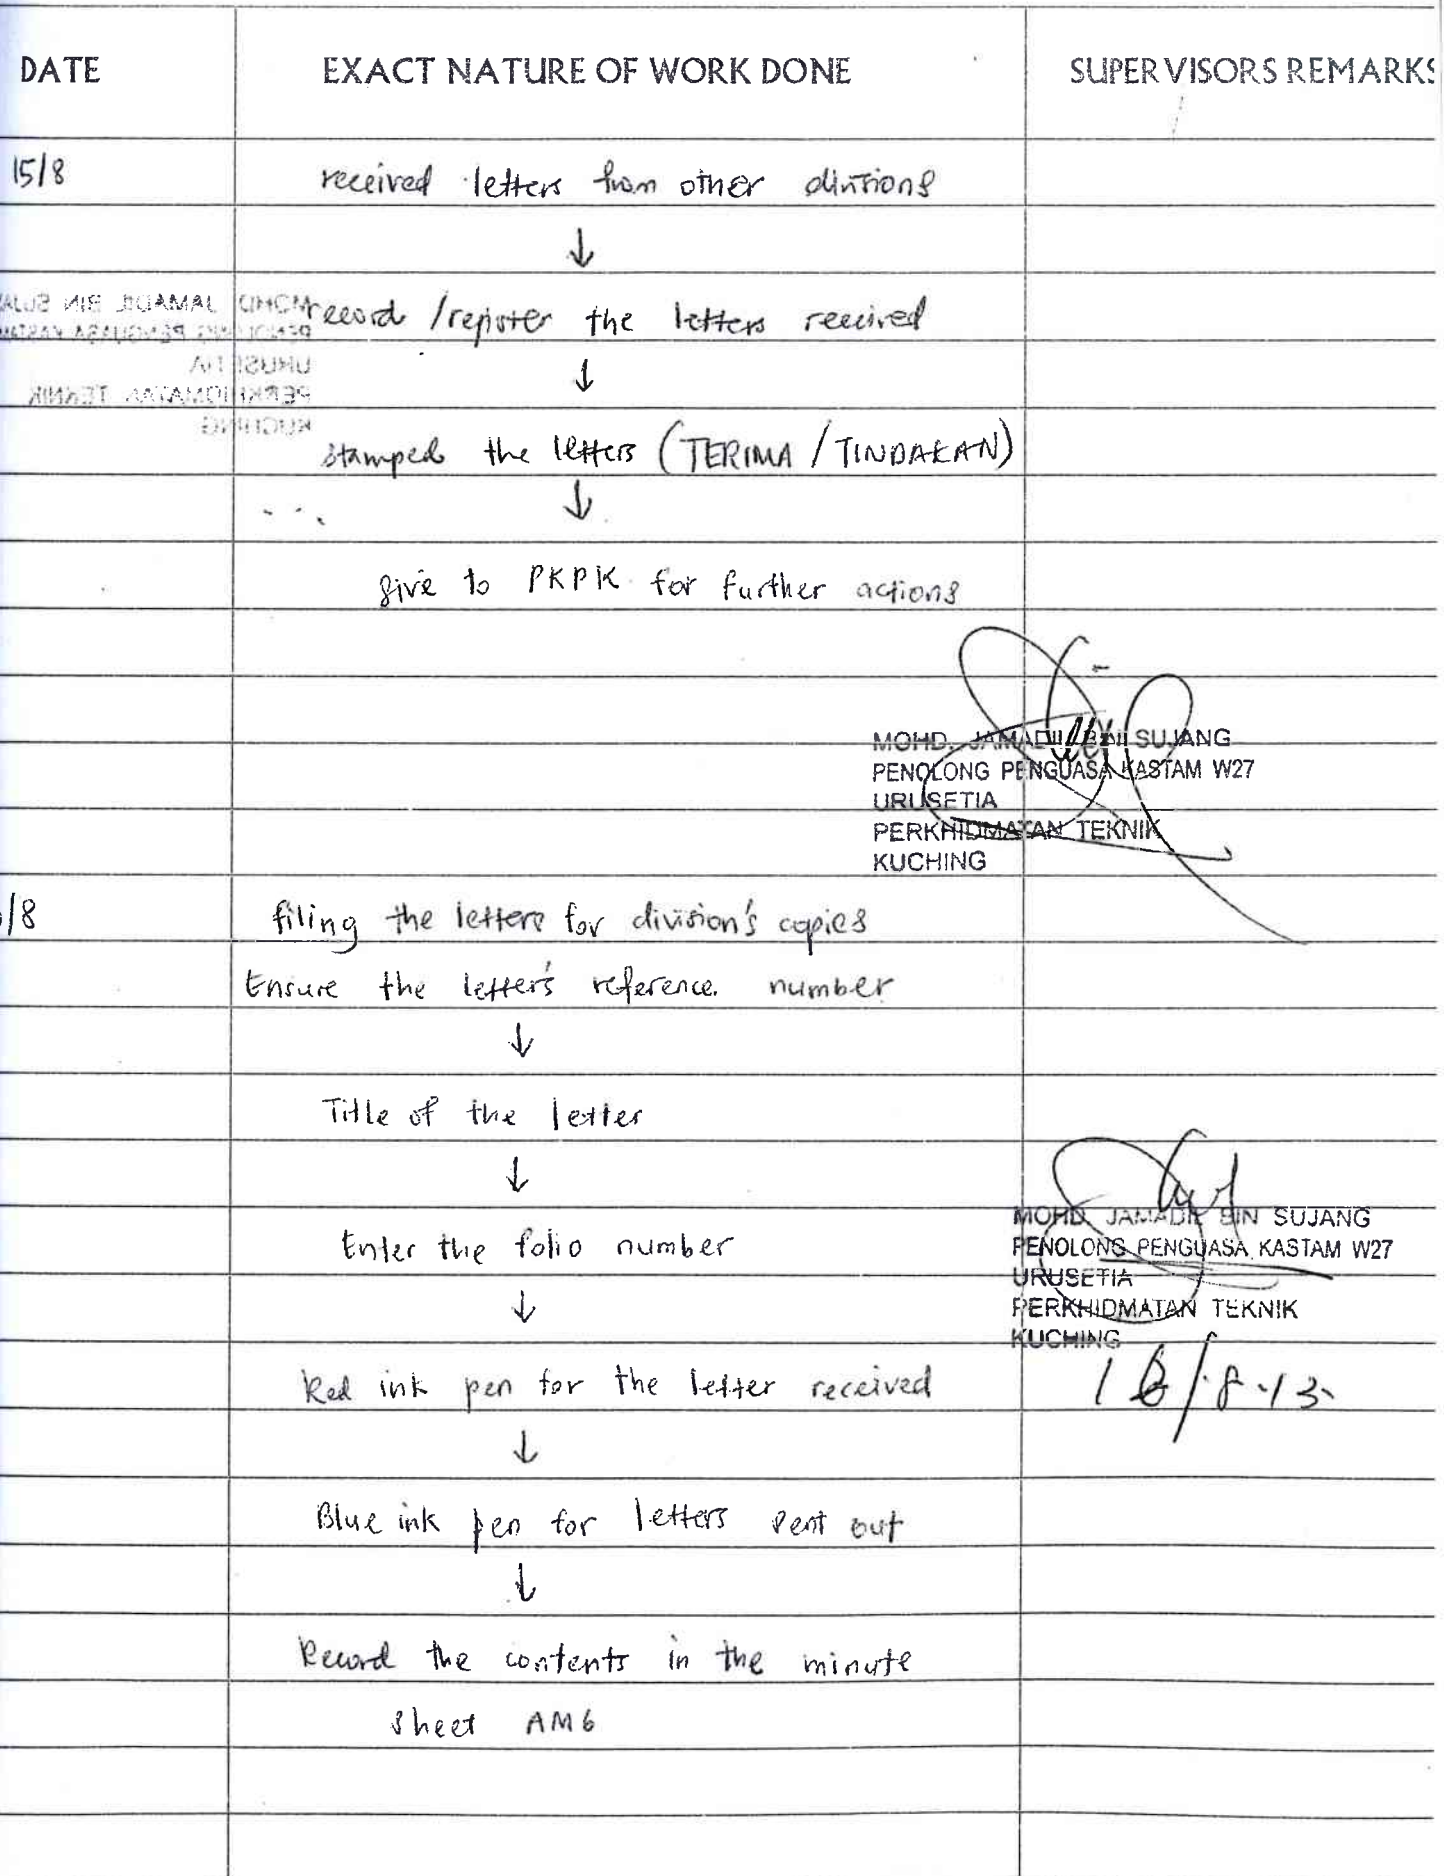 DATE EXACT NATURE OF WORK DONE SUPERVISORS REMARKS
15/8 received letters from other divisions
↓
record / register the letters received
↓
stamped the letters (TERIMA / TINDAKAN)
↓
give to PKPK for further actions
MOHD. JAMADIL BIN SUJANG
PENOLONG PENGUASA KASTAM W27
URUSETIA
PERKHIDMATAN TEKNIK
KUCHING
/8 filing the letters for division's copies
Ensure the letter's reference number
↓
Title of the letter
↓
Enter the folio number
↓
MOHD. JAMADIL BIN SUJANG
PENOLONG PENGUASA KASTAM W27
URUSETIA
PERKHIDMATAN TEKNIK
KUCHING
16/8.13
Red ink pen for the letter received
↓
Blue ink pen for letters sent out
↓
Record the contents in the minute
sheet AM6